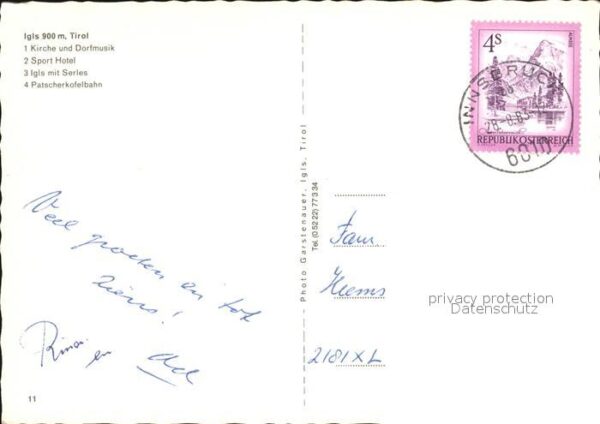 Igls 900 m, Tirol
1 Kirche und Dorfmusik
2 Sport Hotel
3 Igls mit Serles
4 Patscherkofelbahn
4S
ALMSEE
REPUBLIK ÖSTERREICH
INNSBRUCK
28.-8.83
6010
Photo Garstenauer, Igls, Tirol
Tel. (0 52 22) 77 3 34
Veel groeten en tot
ziens!
en Ad
Fam.
Heems
2181XL
privacy protection
Datenschutz
11